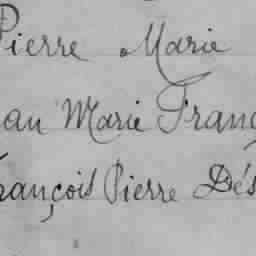 Pierre Marie
ean Marie Franç
François Pierre Dés